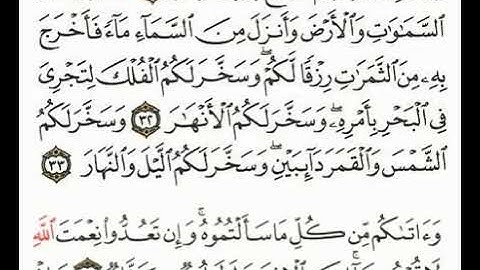 ٱلسَّمَٰوَٰتِ وَٱلْأَرْضَ وَأَنزَلَ مِنَ ٱلسَّمَآءِ مَآءً فَأَخْرَجَ
بِهِۦ مِنَ ٱلثَّمَرَٰتِ رِزْقًا لَّكُمْ ۖ وَسَخَّرَ لَكُمُ ٱلْفُلْكَ لِتَجْرِىَ
فِى ٱلْبَحْرِ بِأَمْرِهِۦ ۖ وَسَخَّرَ لَكُمُ ٱلْأَنْهَٰرَ ٣٢ وَسَخَّرَ لَكُمُ
ٱلشَّمْسَ وَٱلْقَمَرَ دَآئِبَيْنِ ۖ وَسَخَّرَ لَكُمُ ٱلَّيْلَ وَٱلنَّهَارَ ٣٣
وَءَاتَىٰكُم مِّن كُلِّ مَا سَأَلْتُمُوهُ ۚ وَإِن تَعُدُّوا۟ نِعْمَتَ ٱللَّهِ